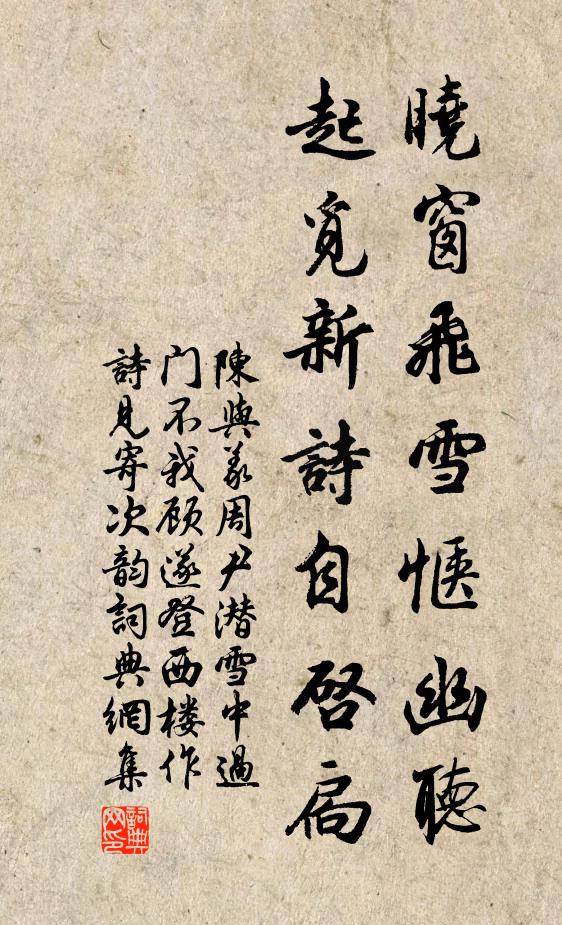 曉窗飛雪愜幽聽
起覓新詩自啓扃
陳與義周尹潛雪中過
门不我顾遂登西楼作
詩見寄次韵詞典網集
詞典网印